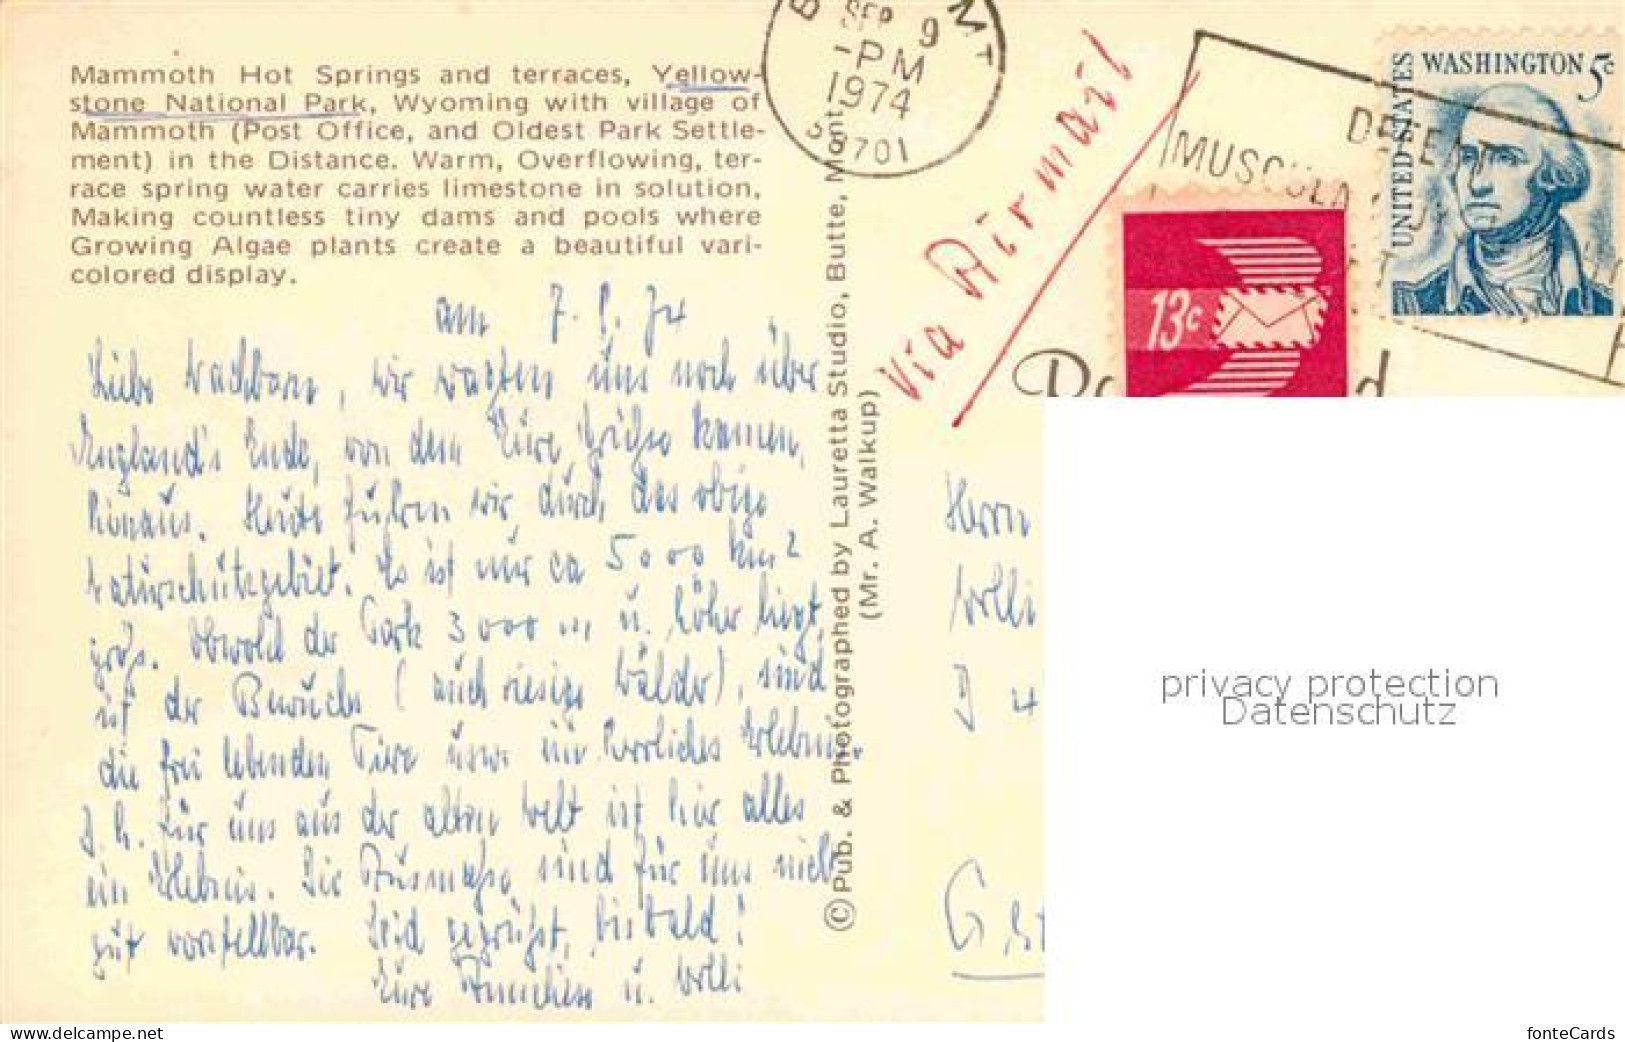 Mammoth Hot Springs and terraces, Yellow-
stone National Park, Wyoming with village of
Mammoth (Post Office, and Oldest Park Settle-
ment) in the Distance. Warm, Overflowing, ter-
race spring water carries limestone in solution,
Making countless tiny dams and pools where
Growing Algae plants create a beautiful vari-
colored display.
am 7. 9. 74
Liebe Nachbarn, wir wagten uns noch über
England's Ende, von dem Eure Grüße kamen,
hinaus. Heute fuhren wir durch das obige
Naturschutzgebiet. Es ist nur ca 5000 km²
groß. Obwohl der Park 3000 m u. höher liegt,
ist der Bewuchs (auch riesige Wälder), sind
die frei lebenden Tiere usw. ein herrliches Erlebnis.
D. h. für uns aus der alten Welt ist hier alles
ein Erlebnis. Die Ausmaße sind für uns nicht
gut vorstellbar. Seid gegrüßt, bis bald!
Eure Annchen u. Willi
© Pub. & Photographed by Lauretta Studio, Butte, Mont.
(Mr. A. Walkup)
SEP 9
PM
1974
MT
Via Airmail
MUSCULA
13c
UNITED STATES
WASHINGTON 5c
Herrn
Willi
D 4
privacy protection
Datenschutz
www.delcampe.net
fonteCards